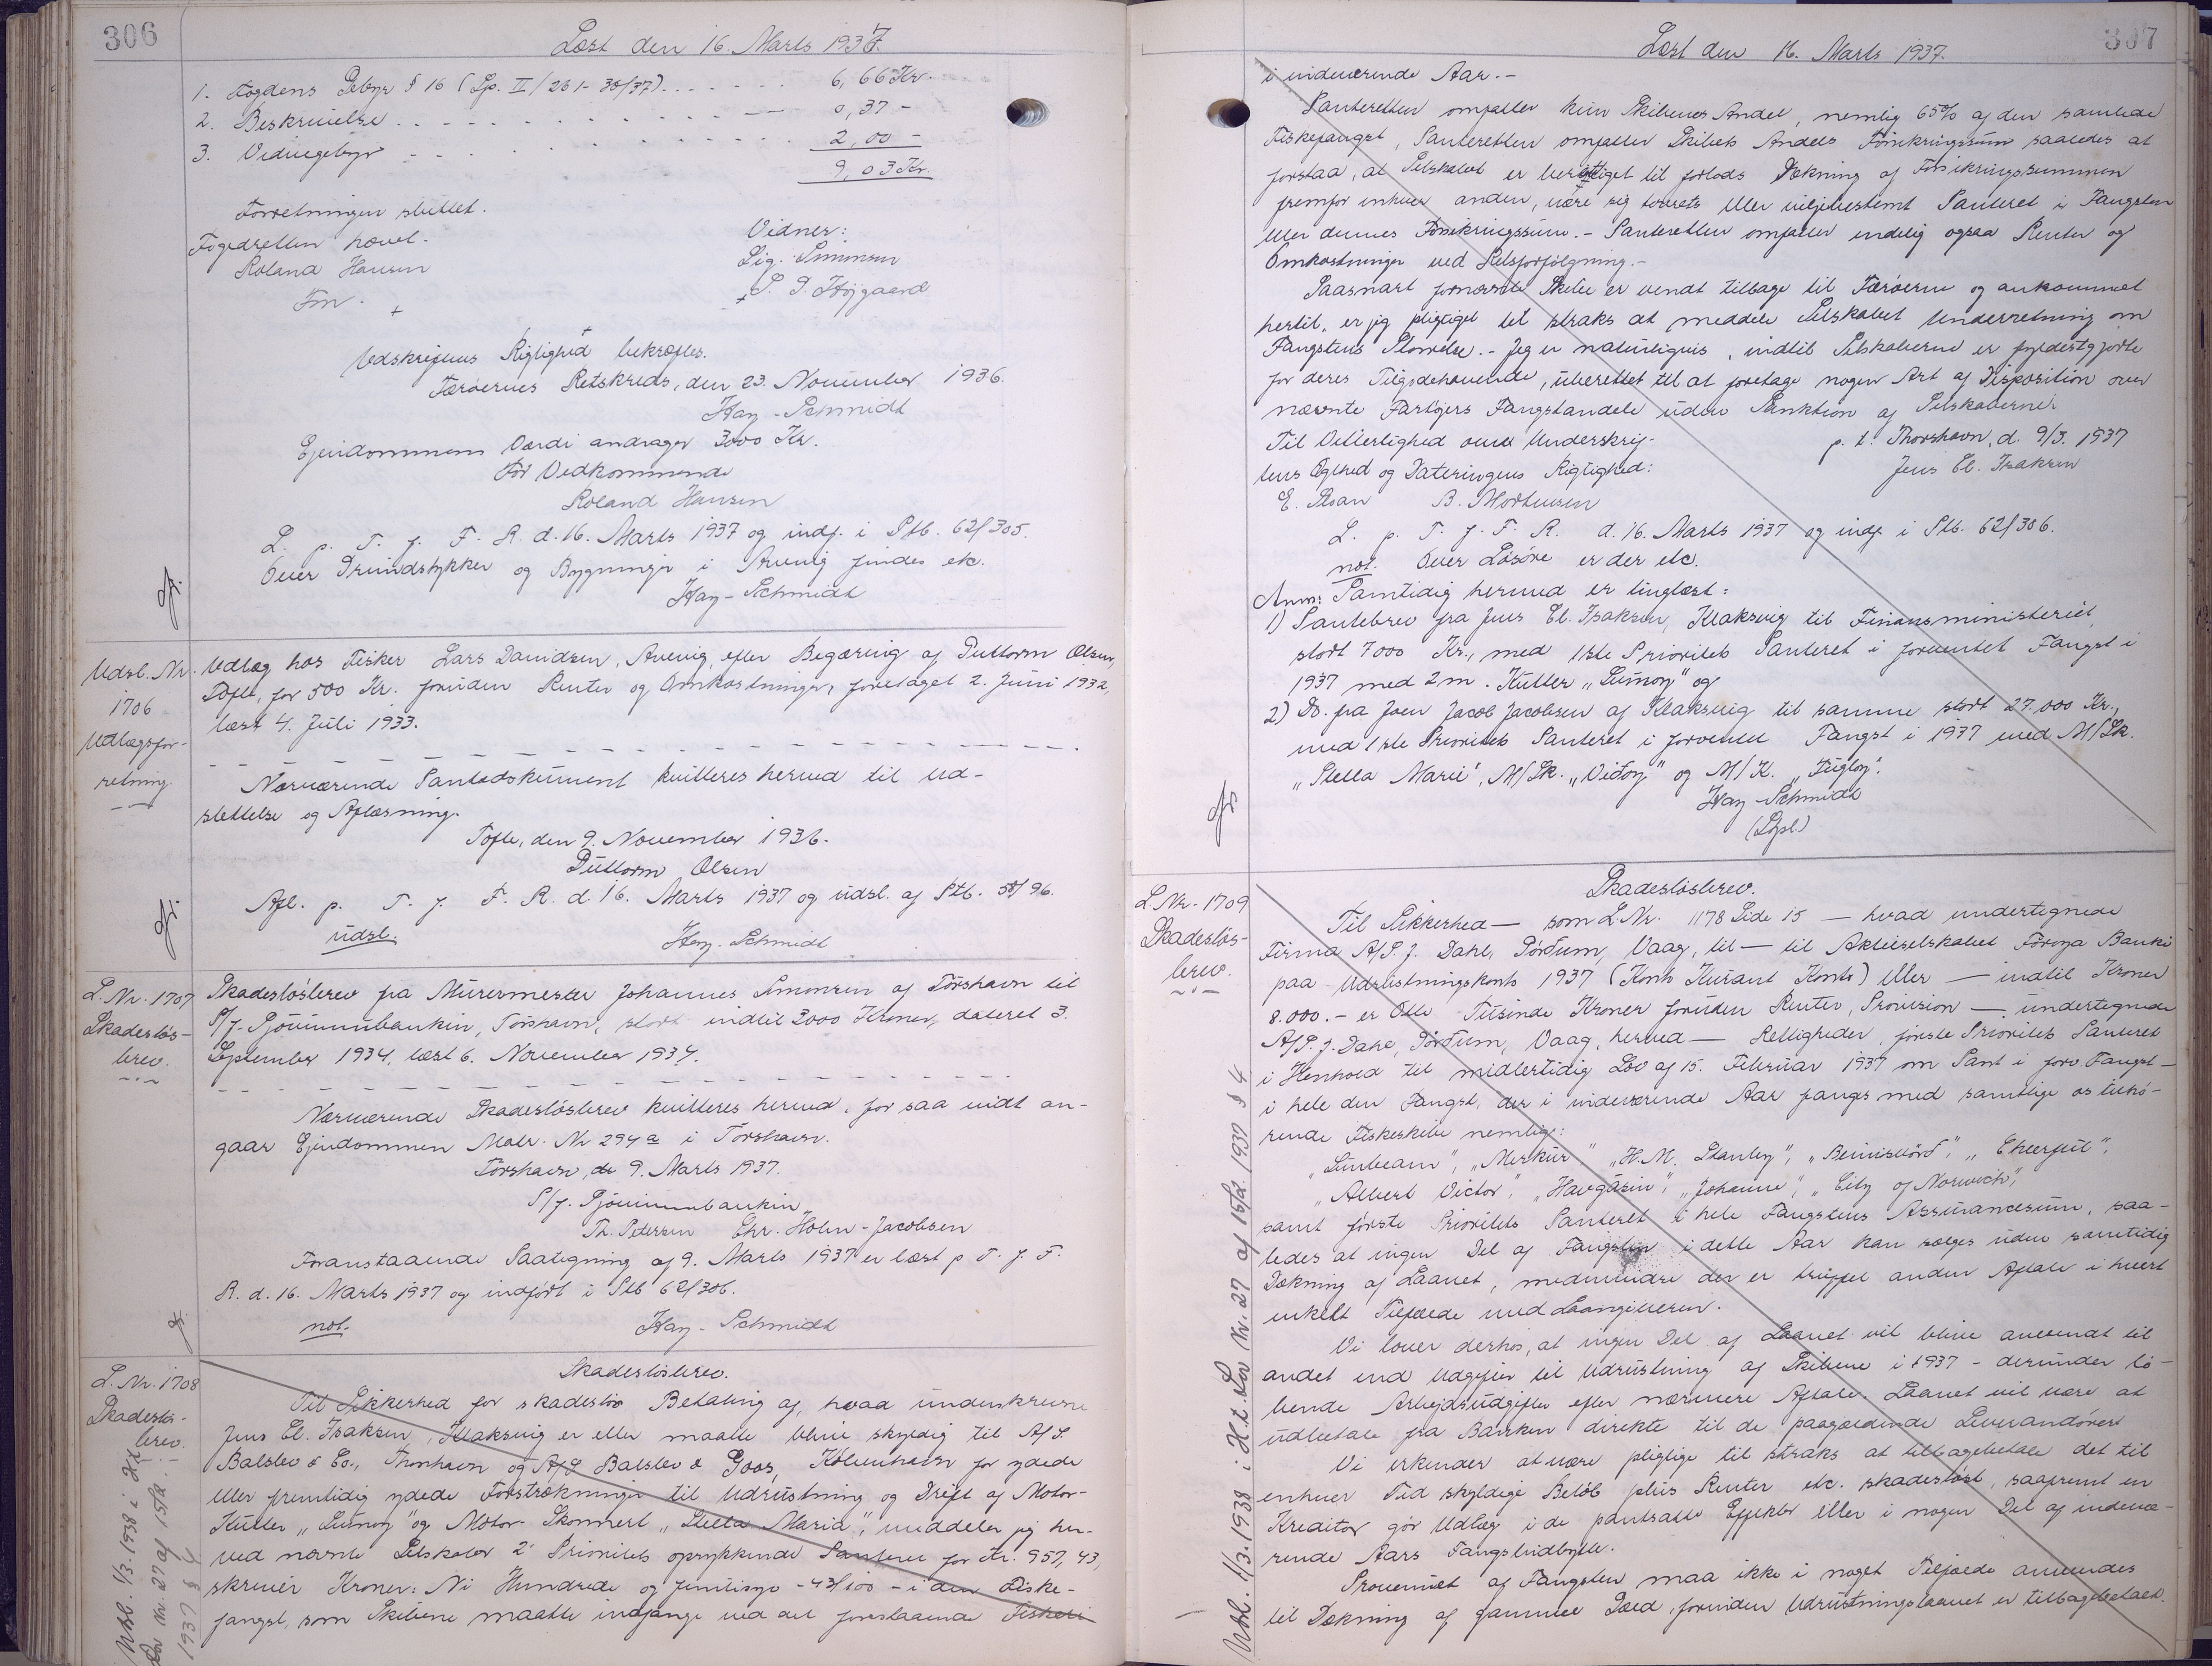 306
Læst den 16. Marts 1937.
1. Fogdens Gebyr § 16 (Lp. II/261-36/37) . . . . . . 6,66 Kr.
2. Beskrivelse . . . . . . . . . . 0,37 -
3. Vidnegebyr - . . . . . . . . . 2,00 -
9,03 Kr.
Forretningen sluttet.
Fogedretten hævet.
Vidner:
Roland Hansen
Sig. Simonsen
Fm.
P. P. Højgaard
Udskriftens Rigtighed bekræftes.
Færøernes Retskreds, den 23. November 1936.
Hay-Schmidt
Ejendommens Værdi andrager 3000 Kr.
For Vedkommende
Roland Hansen
L. p. T. f. F. R. d. 16. Marts 1937 og indf. i Ptb. 62/305.
Over Grundstykker og Bygninger i Arevig findes etc.
Hay-Schmidt
Udsl. Nr.
1706
Udlægsfor-
retning.
Udlæg hos Fisker Lars Davidsen, Avevig, efter Begæring af Guttorm Olsen,
Tofte, for 500 Kr. foruden Renter og Omkostninger, foretaget 2. Juni 1932,
læst 4. Juli 1933.
Nærværende Pantedokument kvitteres herved til Ud-
slettelse og Aflæsning.
Tofte, den 9. November 1936.
Guttorm Olsen
Afl. p. T. f. F. R. d. 16. Marts 1937 og udsl. af Ptb. 58/96.
udsl.
Hay-Schmidt
L. Nr. 1707
Skadesløs-
brev.
Skadesløsbrev fra Murermester Johannes Simonsen af Tórshavn til
P/f. Sjóvinnubankin, Tórshavn, stort indtil 3000 Kroner, dateret 3.
September 1934, læst 6. November 1934.
Nærværende Skadesløsbrev kvitteres herved, for saa vidt an-
gaar Ejendommen Matr. Nr 294a i Tórshavn.
Tórshavn, de 9. Marts 1937.
P/f. Sjóvinnubankin
Th. Petersen Chr. Holm-Jacobsen
Foranstaaende Paategning af 9. Marts 1937 er læst p T. f. F.
R. d. 16. Marts 1937 og indført i Ptb 62/306.
not.
Hay-Schmidt
L. Nr. 1708
Skadesløs-
brev.
Udsl. 1/3.1938 i H.t.
Lov Nr. 27 af 15/2
1937 § 4
Skadesløsbrev.
Til Sikkerhed for skadesløs Betaling af, hvad underskrevne
Jens Cl. Isaksen, Klaksvig er eller maatte blive skyldig til A/S.
Balslev & Co., Thorshavn og A/S Balslev & Goos, København for ydede
eller fremtidig ydede Forstrækninger til Udrustning og Drift af Motor-
Kutter „Svinoy" og Motor-Skonnert „Stella Maria", meddeler jeg her-
ved nævnte Selskaber 2' Prioritets oprykkende Panteret for Kr. 957,43,
skriver Kroner: Ni Hundrede og femtisyv -43/100 - i den Fiske-
fangst, som Skibene maatte indfange ved det forestaaende Fiskeri
307
Læst den 16. Marts 1937.
i indeværende Aar.-
Panteretten omfatter kun Skibenes Andel, nemlig 65% af den samlede
Fiskefangst, Panteretten omfatter Skibets Andels Forsikringssum saaledes at
forstaa, at Selskabet er berettiget til forlods Dækning af Forsikringssummen
fremfor enhver anden, være sig lovrets eller viljebestemt Panteret i Fangsten
eller dennes Forsikringssum.- Panteretten omfatter endelig ogsaa Renter og
Omkostninger ved Retsforfølgning.-
Saasnart fornævnte Skibe er vendt tilbage til Færøerne og ankommet
hertil, er jeg pligtiget til straks at meddele Selskabet Underretning om
Fangstens Størrelse.- Jeg er naturligvis, indtil Selskaberne er fyldestgjorte
for deres Tilgodehavende, uberettet til at foretage nogen Art af Disposition over
nævnte Fartøjers Fangstandele uden Sanktion af Selskaberne.
Til Vitterlighed om Underskrif-
p. t. Thorshavn, d. 9/3. 1937
tens Ægthed og Dateringens Rigtighed:
Jens Cl. Isaksen
B. Morthensen
L. p. T. f. F. R. d. 16. Marts 1937 og indf. i Ptb. 62/306.
not. Over Løsøre er der etc.
Anm: Samtidig hermed er tinglæst:
1) Pantebrev fra Jens Cl. Isaksen, Klaksvig til Finansministeriet,
stort 7000 Kr., med 1ste Prioritets Panteret i forventet Fangst i
1937 med 2 m. Kutter „Svinoy" og
2) Do. fra Joen Jacob Jacobsen af Klaksvig til samme stort 27.000 Kr.,
med 1ste Prioritets Panteret i forventet Fangst i 1937 med M/Sk.
„Stella Maria", M/Sk. „Viðoy" og M/K. „Fugloy".
Hay-Schmidt
L. Nr. 1709
Skadesløs-
brev.
Udsl. 1/3.1938 i H.t. Lov Nr. 27 af 15/2 1937 § 4
Skadesløsbrev.
Til Sikkerhed — som L. Nr. 1178 Side 15 — hvad undertegnede
Firma A/S. J. Dahl, Pørðum, Vaag, til — til Aktieselskabet Føroya Banki
paa Udrustningskonto 1937 (Konto Kurant Konto) eller — indtil Kroner
8.000.- er Otte Tusinde Kroner foruden Renter, Provision — undertegnede
A/S. J. Dahl, Pørðum, Vaag, herved — Rettigheder, første Prioritets Panteret
i Henhold til midlertidig Lov af 15. Februar 1937 om Pant i forv. Fangst -
i hele den Fangst, der i indeværende Aar fanges med samtlige os tilhø-
rende Fiskeskibe nemlig:
„Sunbeam", „Merkur" „H. M. Stanley", „Beinisvørð", „Cheerful",
„Albert Victor", „Havgásin", „Johanne", „City of Norwich",
samt første Prioritets Panteret i hele Fangstens Assurancesum, saa-
ledes at ingen Del af Fangsten i dette Aar kan sælges uden samtidig
Dækning af Laanet, medmindre der er truffet anden Aftale i hvert
enkelt Tilfælde med Laangiveren.
Vi lover derhos, at ingen Del af Laanet vil blive anvendt til
andet end Udgifter til Udrustning af Skibene i 1937 - derunder lø-
bende Arbejdsudgifter efter nærmere Aftale. Laanet vil være at
udbetale fra Banken direkte til de paagældende Leverandører.
Vi erkender at være pligtige til straks at tilbagebetale det til
enhver Tid skyldige Beløb plus Renter etc. skadesløst, saafremt en
Kreditor gør Udlæg i de pantsatte Effekter eller i nogen Del af indevæ-
rende Aars Fangstudbytte.
Provenuet af Fangsten maa ikke i noget Tilfælde anvendes
til Dækning af gammel Gæld, forinden Udrustningslaanet er tilbagebetalt.